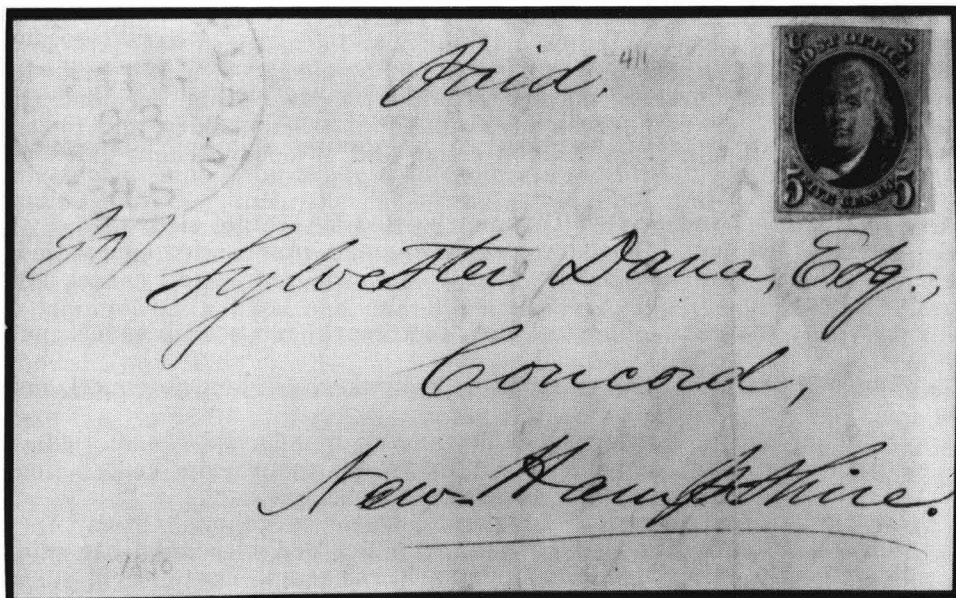 Paid.
U S
POST OFFICE
5 FIVE CENTS 5
Sylvester Dana, Esq.,
Concord,
New-Hampshire.